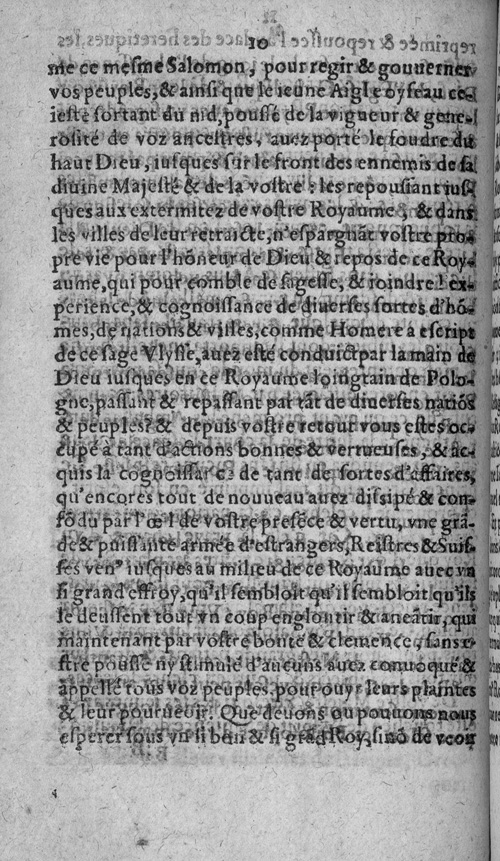 10
me ce mesme Salomon, pour regir & gouuerner
vos peuples, & ainsi que le ieune Aigle oyseau ce-
leste sortant du nid, poussé de la vigueur & gene-
rosité de voz ancestres, auez porté le foudre du
haut Dieu, iusques sur le front des ennemis de sa
diuine Majesté & de la vostre : les repoussant ius-
ques aux extermitez de vostre Royaume, & dans
les villes de leur retraicte, n'espargnãt vostre pro-
pre vie pour l'hõneur de Dieu & repos de ce Roy-
aume, qui pour comble de sagesse, & ioindre l'ex-
perience, & cognoissance de diuerses sortes d'hõ-
mes, de nations & villes, comme Homere a escript
de ce sage Vlysse, auez esté conduict par la main de
Dieu iusques en ce Royaume loingtain de Polo-
gne, passant & repassant par tãt de diuerses natiõs
& peuples? & depuis vostre retour vous estes oc-
cupé à tant d'actions bonnes & vertueuses, & ac-
quis la cognoissance de tant de sortes d'affaires,
qu'encores tout de nouueau auez dissipé & con-
fõdu par l'œil de vostre presẽce & vertu, vne grã-
de & puissante armée d'estrangers, Reistres & Suis-
ses venꝰ iusques au milieu de ce Royaume auec vn
si grand effroy, qu'il sembloit qu'il sembloit qu'ils
le deussent tout vn coup engloutir & aneãtir, qui
maintenant par vostre bonté & clemence, sans e-
stre poussé ny stimulé d'aucuns auez conuoqué &
appellé tous voz peuples, pour ouyr leurs plaintes
& leur pourueoir. Que deuons ou pouuons nous
esperer sous vn si bon & si grãd Roy, sinõ de veoir